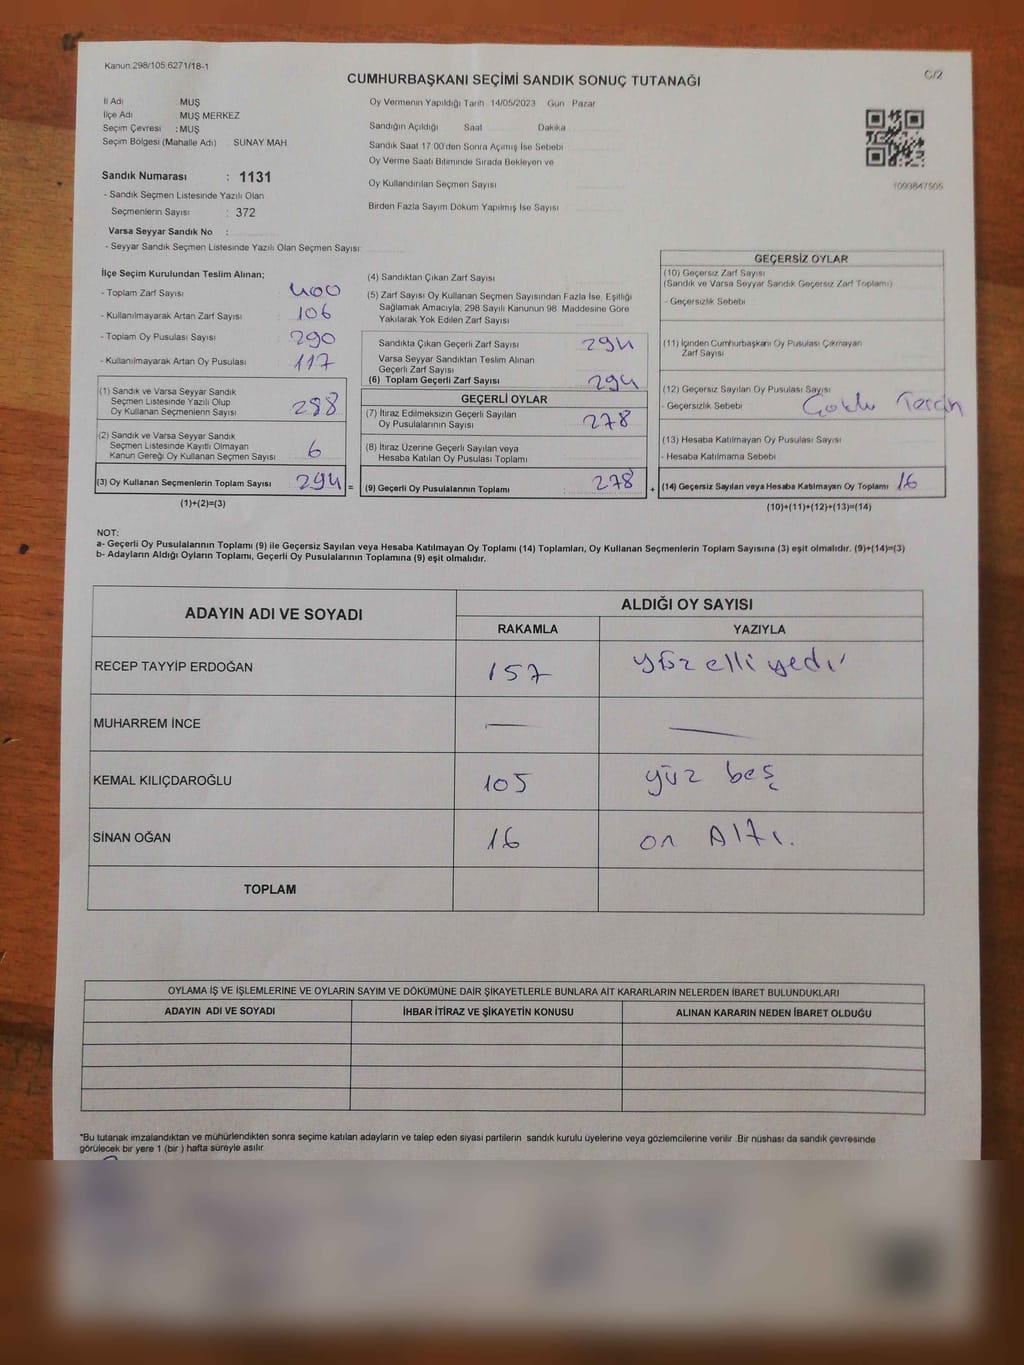 Kanun 298/105 6271/18-1
C/2
CUMHURBAŞKANI SEÇİMİ SANDIK SONUÇ TUTANAĞI
İl Adı : MUŞ
İlçe Adı MUŞ MERKEZ
Seçim Çevresi : MUŞ
Seçim Bölgesi (Mahalle Adı) SUNAY MAH.
Oy Vermenin Yapıldığı Tarih 14/05/2023 Gün Pazar
Sandığın Açıldığı Saat Dakika
Sandık Saat 17:00'den Sonra Açımış İse Sebebi
Oy Verme Saati Bitiminde Sırada Bekleyen ve
Oy Kullandırılan Seçmen Sayısı
Birden Fazla Sayım Döküm Yapılmış İse Sayısı
1093847505
Sandık Numarası : 1131
- Sandık Seçmen Listesinde Yazılı Olan
Seçmenlerin Sayısı : 372
Varsa Seyyar Sandık No :
- Seyyar Sandık Seçmen Listesinde Yazılı Olan Seçmen Sayısı
İlçe Seçim Kurulundan Teslim Alınan;
- Toplam Zarf Sayısı 400
- Kullanılmayarak Artan Zarf Sayısı 106
- Toplam Oy Pusulası Sayısı 290
- Kullanılmayarak Artan Oy Pusulası 117
(1) Sandık ve Varsa Seyyar Sandık
Seçmen Listesinde Yazılı Olup
Oy Kullanan Seçmenlerin Sayısı 288
(2) Sandık ve Varsa Seyyar Sandık
Seçmen Listesinde Kayıtlı Olmayan
Kanun Gereği Oy Kullanan Seçmen Sayısı 6
(3) Oy Kullanan Seçmenlerin Toplam Sayısı 294 =
(1)+(2)=(3)
(4) Sandıktan Çıkan Zarf Sayısı
(5) Zarf Sayısı Oy Kullanan Seçmen Sayısından Fazla İse, Eşitliği
Sağlamak Amacıyla, 298 Sayılı Kanunun 98. Maddesine Göre
Yakılarak Yok Edilen Zarf Sayısı
Sandıkta Çıkan Geçerli Zarf Sayısı 294
Varsa Seyyar Sandıktan Teslim Alınan
Geçerli Zarf Sayısı
(6) Toplam Geçerli Zarf Sayısı 294
GEÇERLİ OYLAR
(7) İtiraz Edilmeksizin Geçerli Sayılan
Oy Pusulalarının Sayısı 278
(8) İtiraz Üzerine Geçerli Sayılan veya
Hesaba Katılan Oy Pusulası Toplamı
(9) Geçerli Oy Pusulalarının Toplamı : 278 +
GEÇERSİZ OYLAR
(10) Geçersiz Zarf Sayısı
(Sandık ve Varsa Seyyar Sandık Geçersiz Zarf Toplamı)
- Geçersizlik Sebebi
(11) İçinden Cumhurbaşkanı Oy Pusulası Çıkmayan
Zarf Sayısı
(12) Geçersiz Sayılan Oy Pusulası Sayısı
- Geçersizlik Sebebi Çoklu Tercih
(13) Hesaba Katılmayan Oy Pusulası Sayısı
- Hesaba Katılmama Sebebi
(14) Geçersiz Sayılan veya Hesaba Katılmayan Oy Toplamı 16
(10)+(11)+(12)+(13)=(14)
NOT:
a- Geçerli Oy Pusulalarının Toplamı (9) ile Geçersiz Sayılan veya Hesaba Katılmayan Oy Toplamı (14) Toplamları, Oy Kullanan Seçmenlerin Toplam Sayısına (3) eşit olmalıdır. (9)+(14)=(3)
b- Adayların Aldığı Oyların Toplamı, Geçerli Oy Pusulalarının Toplamına (9) eşit olmalıdır.
ADAYIN ADI VE SOYADI ALDIĞI OY SAYISI
RAKAMLA YAZIYLA
RECEP TAYYİP ERDOĞAN 157 yüz elli yedi
MUHARREM İNCE — —
KEMAL KILIÇDAROĞLU 105 yüz beş
SİNAN OĞAN 16 on Altı.
TOPLAM
OYLAMA İŞ VE İŞLEMLERİNE VE OYLARIN SAYIM VE DÖKÜMÜNE DAİR ŞİKAYETLERLE BUNLARA AİT KARARLARIN NELERDEN İBARET BULUNDUKLARI
ADAYIN ADI VE SOYADI İHBAR İTİRAZ VE ŞİKAYETİN KONUSU ALINAN KARARIN NEDEN İBARET OLDUĞU
*Bu tutanak imzalandıktan ve mühürlendikten sonra seçime katılan adayların ve talep eden siyasi partilerin sandık kurulu üyelerine veya gözlemcilerine verilir. Bir nüshası da sandık çevresinde
görülecek bir yere 1 (bir ) hafta süreyle asılır.